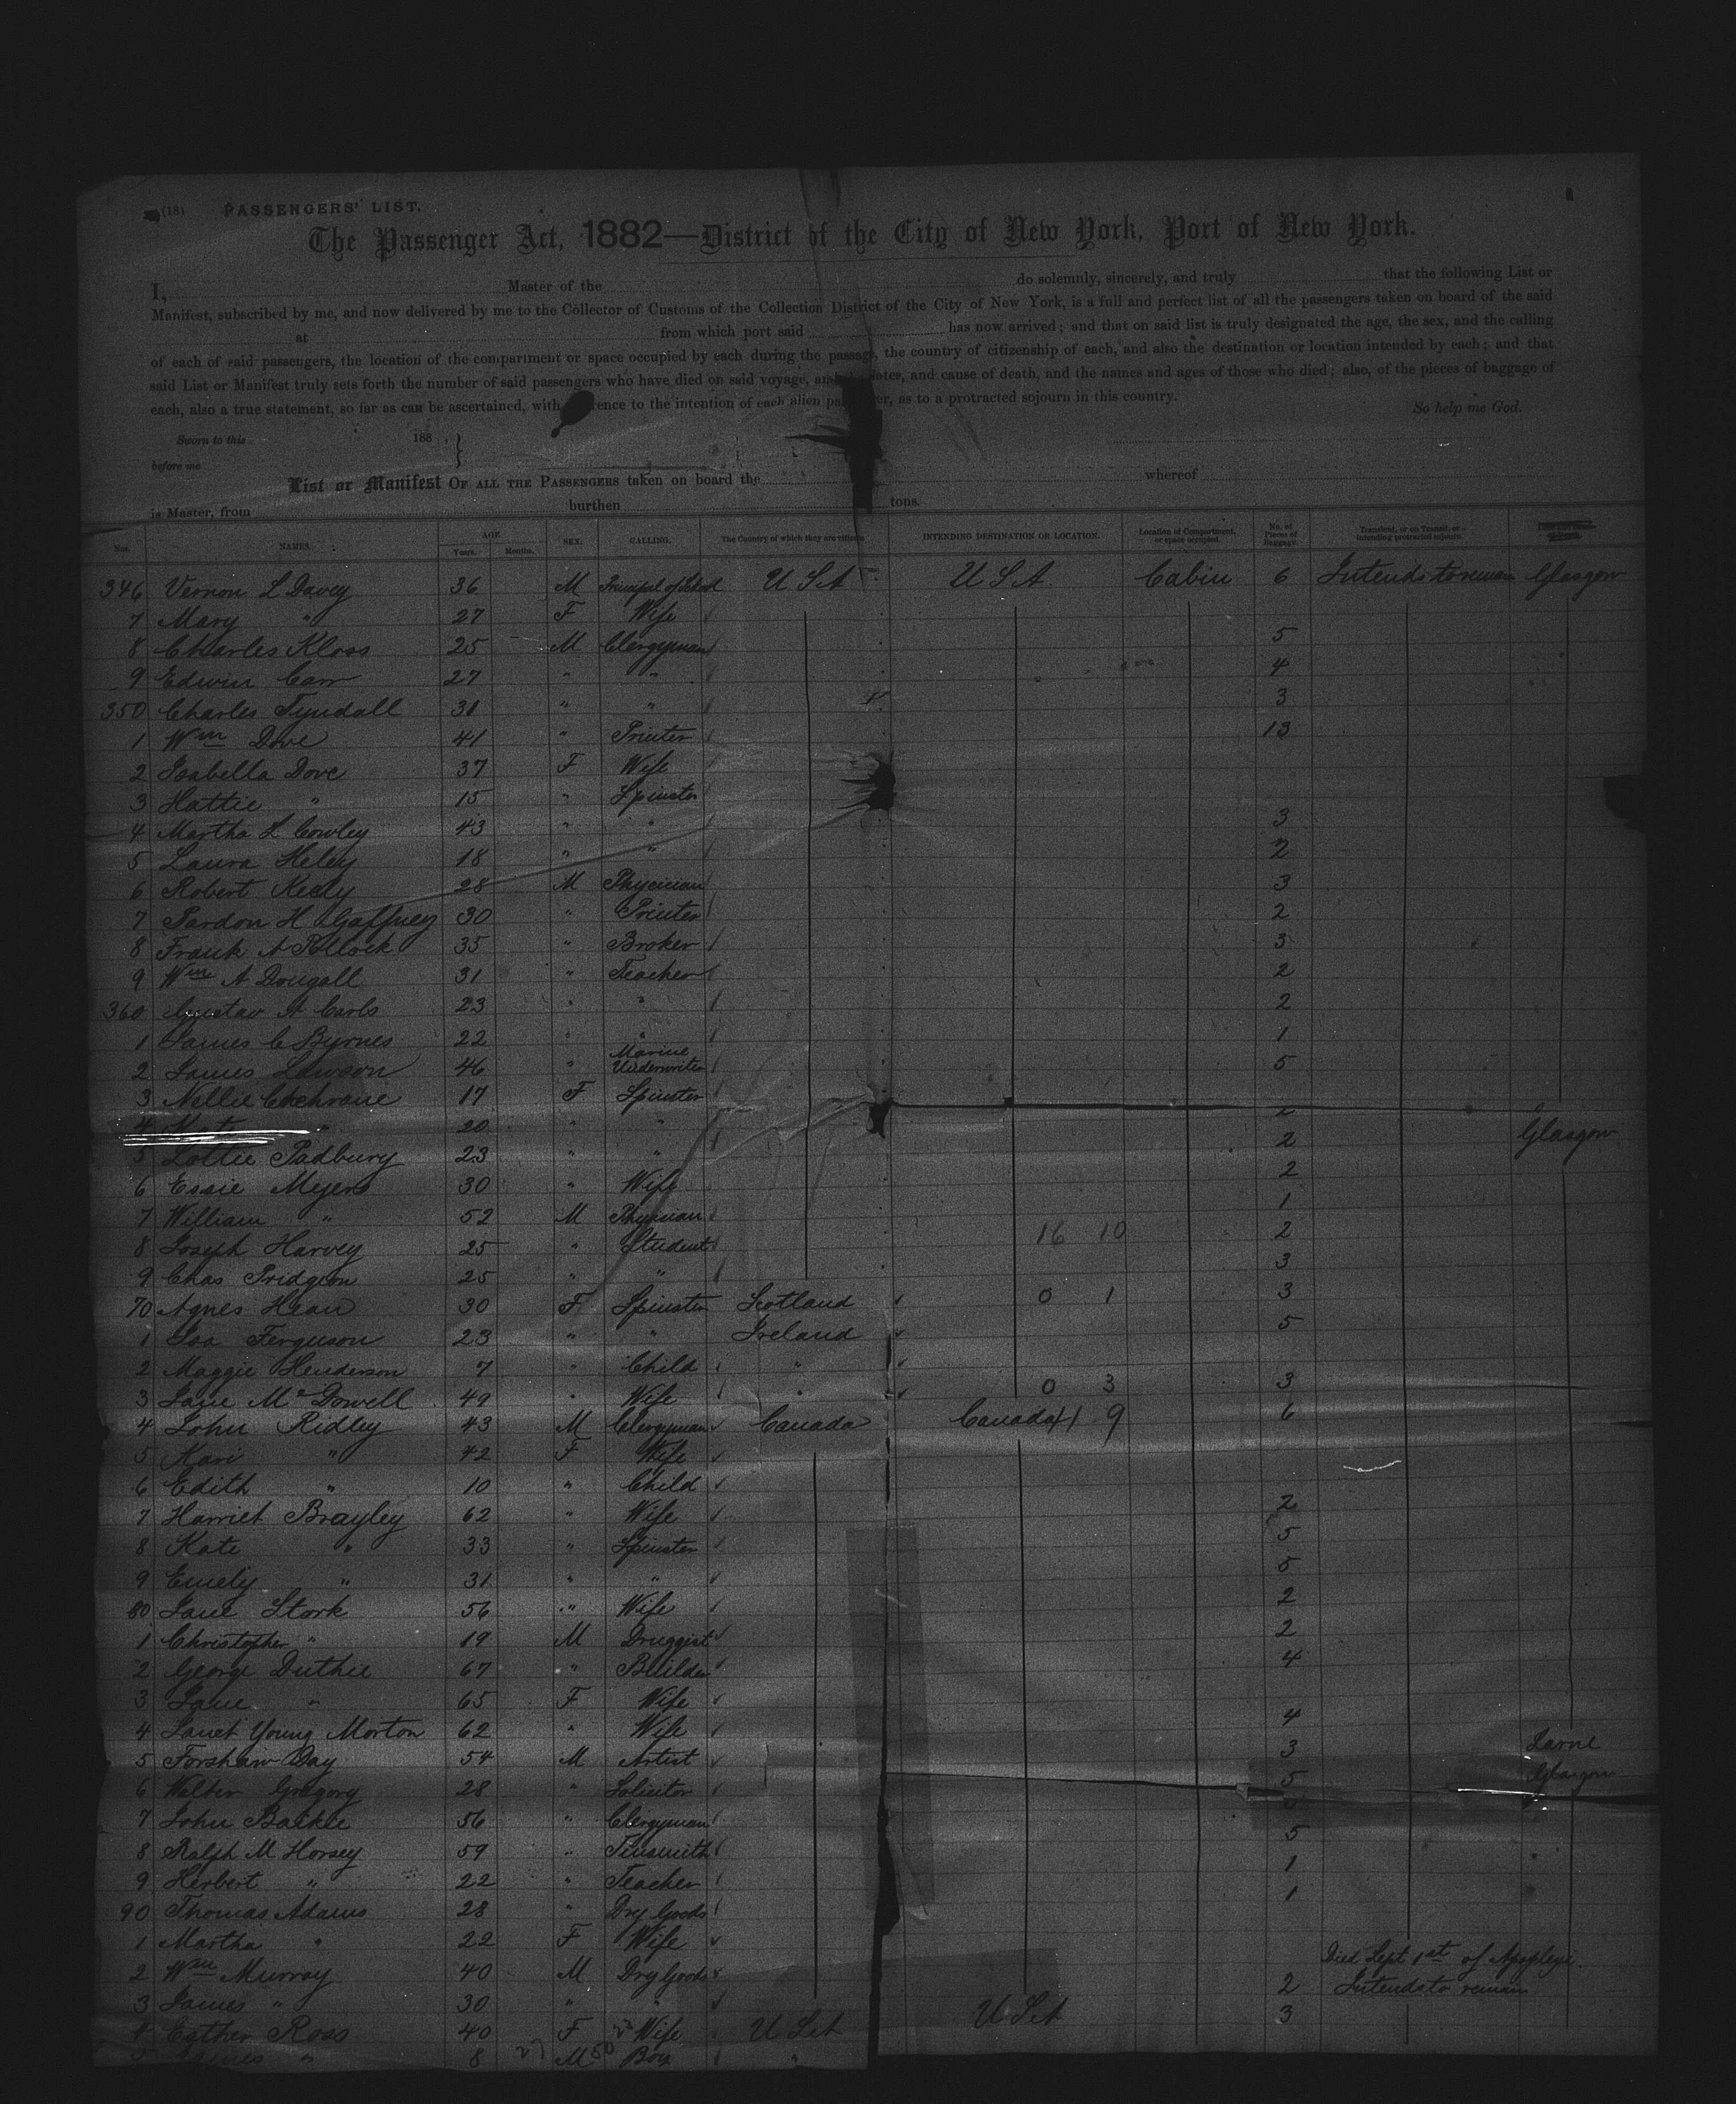 (18) PASSENGERS' LIST.
The Passenger Act, 1882—District of the City of New York, Port of New York.
I, Master of the do solemnly, sincerely, and truly that the following List or
Manifest, subscribed by me, and now delivered by me to the Collector of Customs of the Collection District of the City of New York, is a full and perfect list of all the passengers taken on board of the said
at from which port said has now arrived; and that on said list is truly designated the age, the sex, and the calling
of each of said passengers, the location of the compartment or space occupied by each during the passage, the country of citizenship of each, and also the destination or location intended by each; and that
said List or Manifest truly sets forth the number of said passengers who have died on said voyage, and dates, and cause of death, and the names and ages of those who died; also, of the pieces of baggage of
each, also a true statement, so far as can be ascertained, with reference to the intention of each alien passenger, as to a protracted sojourn in this country. So help me God.
Sworn to this 188
before me
List or Manifest OF ALL THE PASSENGERS taken on board the whereof
is Master, from burthen tons.
Nos. NAMES. AGE Years. Months. SEX. CALLING. The Country of which they are citizens INTENDING DESTINATION OR LOCATION. Location of Compartment, or space occupied. No. of Pieces of Baggage. Transient, or in Transit, or intending protracted sojourn.
346 Vernon L Davey 36 M Principal of School U S A U S A Cabin 6 Intends to remain Glasgow
7 Mary " 27 F Wife
8 Charles Kloss 25 M Clergyman 5
9 Edwin Carr 27 " " 4
350 Charles Tyndall 31 " " 3
1 Wm Dove 41 " Printer 13
2 Isabella Dove 37 F Wife
3 Hattie " 15 " Spinster
4 Martha L Cowley 43 " " 3
5 Laura Heley 18 " " 2
6 Robert Keely 28 M Physician 3
7 Pardon H Gaffney 30 " Printer 2
8 Frank A Pollock 35 " Broker 3
9 Wm A Dougall 31 " Teacher 2
360 Gustav A Carls 23 " " 2
1 James C Byrnes 22 " " 1
2 James Lawson 46 " Marine Underwriter 5
3 Nellie Cochrane 17 F Spinster
4 " 20 " " 2 Glasgow
5 Lottie Padbury 23 " " 2
6 Essie Myers 30 " Wife 2
7 William " 52 M Physician 1
8 Joseph Harvey 25 " Student 16 10 2
9 Chas Pridgeon 25 " " 3
70 Agnes Hean 30 F Spinster Scotland 0 1 3
1 Isa Ferguson 23 " " Ireland 5
2 Maggie Henderson 7 " Child "
3 Jane McDowell 49 " Wife " 0 3 3
4 John Ridley 43 M Clergyman Canada Canada 41 9 6
5 Mari " 42 F Wife
6 Edith " 10 " Child
7 Harriet Brayley 62 " Wife 2
8 Kate " 33 " Spinster 5
9 Emely " 31 " " 5
80 Jane Stork 56 " Wife 2
1 Christopher " 19 M Druggist 2
2 George Duthie 67 " Builder 4
3 Jane " 65 F Wife
4 Janet Young Morton 62 " Wife 4
5 Forshaw Day 54 M Artist 3 Larne
6 Walter Gregory 28 " Solicitor 5 Glasgow
7 John Baikie 56 " Clergyman
8 Ralph M Horsey 59 " Tinsmith 5
9 Herbert " 22 " Teacher 1
90 Thomas Adams 28 " Dry Goods 1
1 Martha " 22 F Wife
2 Wm Murray 40 M Dry Goods Died Sept 1st of Apoplexy.
3 James " 30 " " 2 Intends to remain
4 Esther Ross 40 F Wife U S A U S A 3
" 8 M Boy "